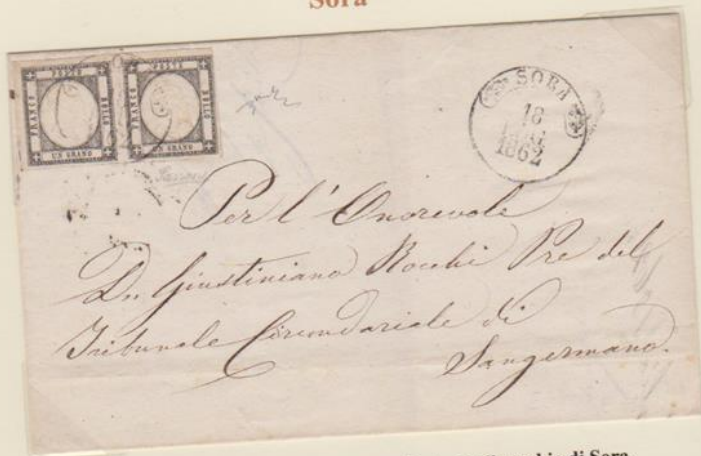 Sora
FRANCO POSTA BOLLO UN GRANO
FRANCO POSTA BOLLO UN GRANO
SORA
18
1862
Per l'Onorevole
Dn. Giustiniano Rocchi Pre del
Tribunale Circondariale di
Sangermano
di Sora